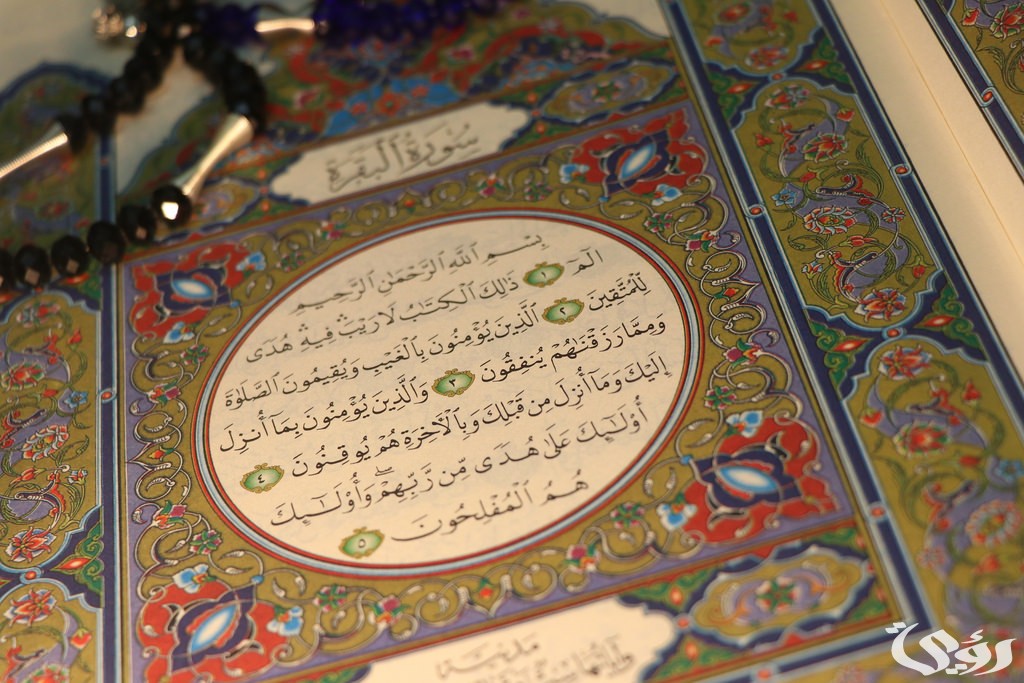 سُورَةُ الْبَقَرَةِ
بِسْمِ اللَّهِ الرَّحْمَٰنِ الرَّحِيمِ
الٓمٓ ١ ذَٰلِكَ الْكِتَابُ لَا رَيْبَ ۛ فِيهِ ۛ هُدًى
لِّلْمُتَّقِينَ ٢ الَّذِينَ يُؤْمِنُونَ بِالْغَيْبِ وَيُقِيمُونَ الصَّلَاةَ
وَمِمَّا رَزَقْنَاهُمْ يُنفِقُونَ ٣ وَالَّذِينَ يُؤْمِنُونَ بِمَا أُنزِلَ
إِلَيْكَ وَمَا أُنزِلَ مِن قَبْلِكَ وَبِالْآخِرَةِ هُمْ يُوقِنُونَ ٤
أُولَٰئِكَ عَلَىٰ هُدًى مِّن رَّبِّهِمْ ۖ وَأُولَٰئِكَ
هُمُ الْمُفْلِحُونَ ٥
مدنية
رؤية